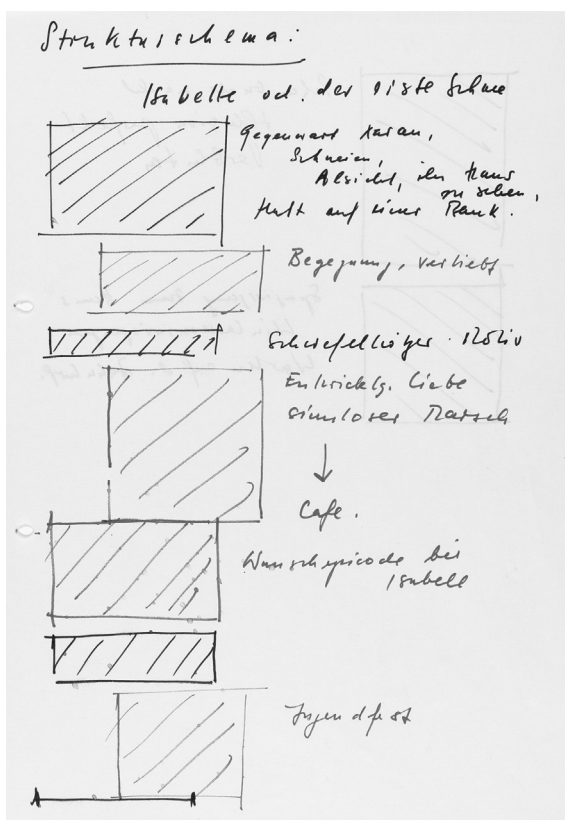 Strukturschema:
Isabelle od. der erste Schnee
Gegenwart
Schneien,
Absicht, ihr Haus
zu sehen,
Halt auf einer Bank.
Begegnung, verliebt
Motiv
Entwicklg. Liebe
sinnloser Marsch
↓
Cafe.
Wunschepisode bei
Isabell
Jugendfest